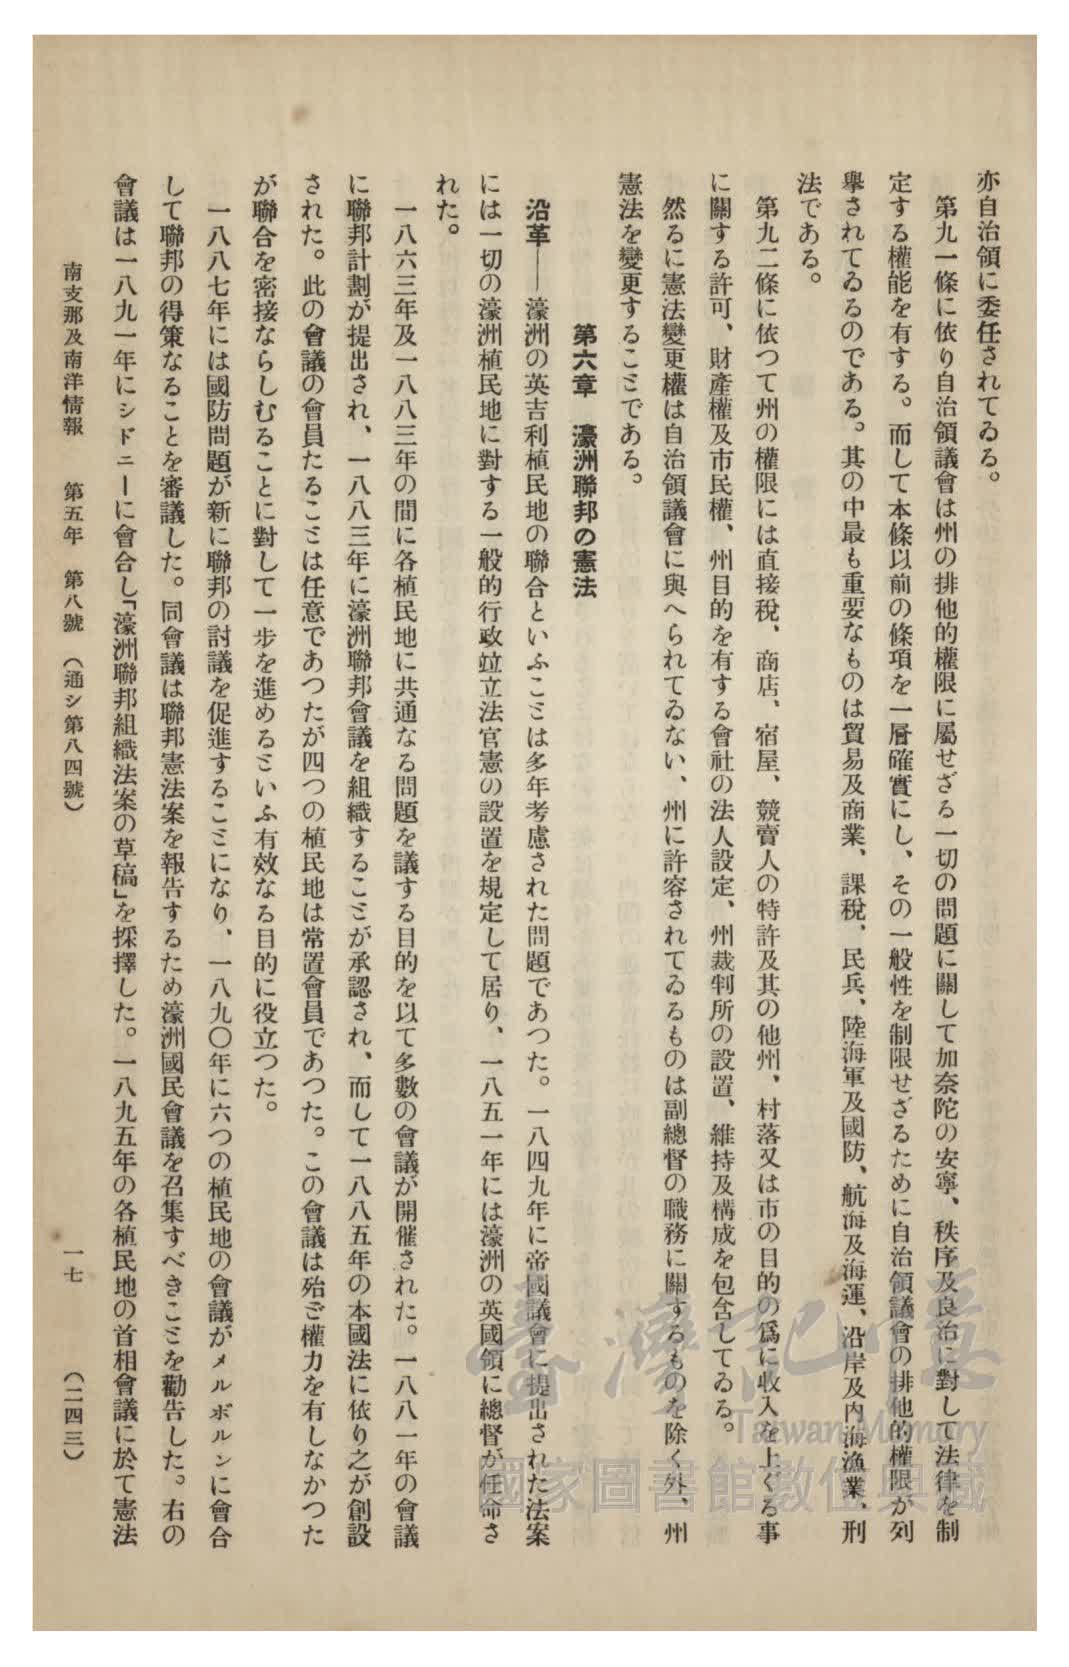 亦自治領に委任されてゐる。
第九一條に依り自治領議會は州の排他的權限に屬せざる一切の問題に關して加奈陀の安寧、秩序及良治に對して法律を制
定する權能を有する。而して本條以前の條項を一層確實にし、その一般性を制限せざるために自治領議會の排他的權限が列
擧されてゐるのである。其の中最も重要なものは貿易及商業、課稅、民兵、陸海軍及國防、航海及海運、沿岸及內海漁業、刑
法である。
第九二條に依つて州の權限には直接稅、商店、宿屋、競賣人の特許及其の他州、村落又は市の目的の爲に收入を上ぐる事
に關する許可、財產權及市民權、州目的を有する會社の法人設定、州裁判所の設置、維持及構成を包含してゐる。
然るに憲法變更權は自治領議會に與へられてゐない、州に許容されてゐるものは副總督の職務に關するものを除く外、州
憲法を變更することである。
第六章　濠洲聯邦の憲法
沿革――濠洲の英吉利植民地の聯合といふことは多年考慮された問題であつた。一八四九年に帝國議會に提出された法案
には一切の濠洲植民地に對する一般的行政竝立法官憲の設置を規定して居り、一八五一年には濠洲の英國領に總督が任命さ
れた。
一八六三年及一八八三年の間に各植民地に共通なる問題を議する目的を以て多數の會議が開催された。一八八一年の會議
に聯邦計劃が提出され、一八八三年に濠洲聯邦會議を組織することが承認され、而して一八八五年の本國法に依り之が創設
された。此の會議の會員たることは任意であつたが四つの植民地は常置會員であつた。この會議は殆ど權力を有しなかつた
が聯合を密接ならしむることに對して一步を進めるといふ有效なる目的に役立つた。
一八八七年には國防問題が新に聯邦の討議を促進することになり、一八九〇年に六つの植民地の會議がメルボルンに會合
して聯邦の得策なることを審議した。同會議は聯邦憲法案を報告するため濠洲國民會議を召集すべきことを勸告した。右の
會議は一八九一年にシドニーに會合し「濠洲聯邦組織法案の草稿」を採擇した。一八九五年の各植民地の首相會議に於て憲法
南支那及南洋情報　第五年　第八號　（通シ第八四號）　一七　（二四三）
臺灣記憶
Taiwan Memory
國家圖書館數位典藏